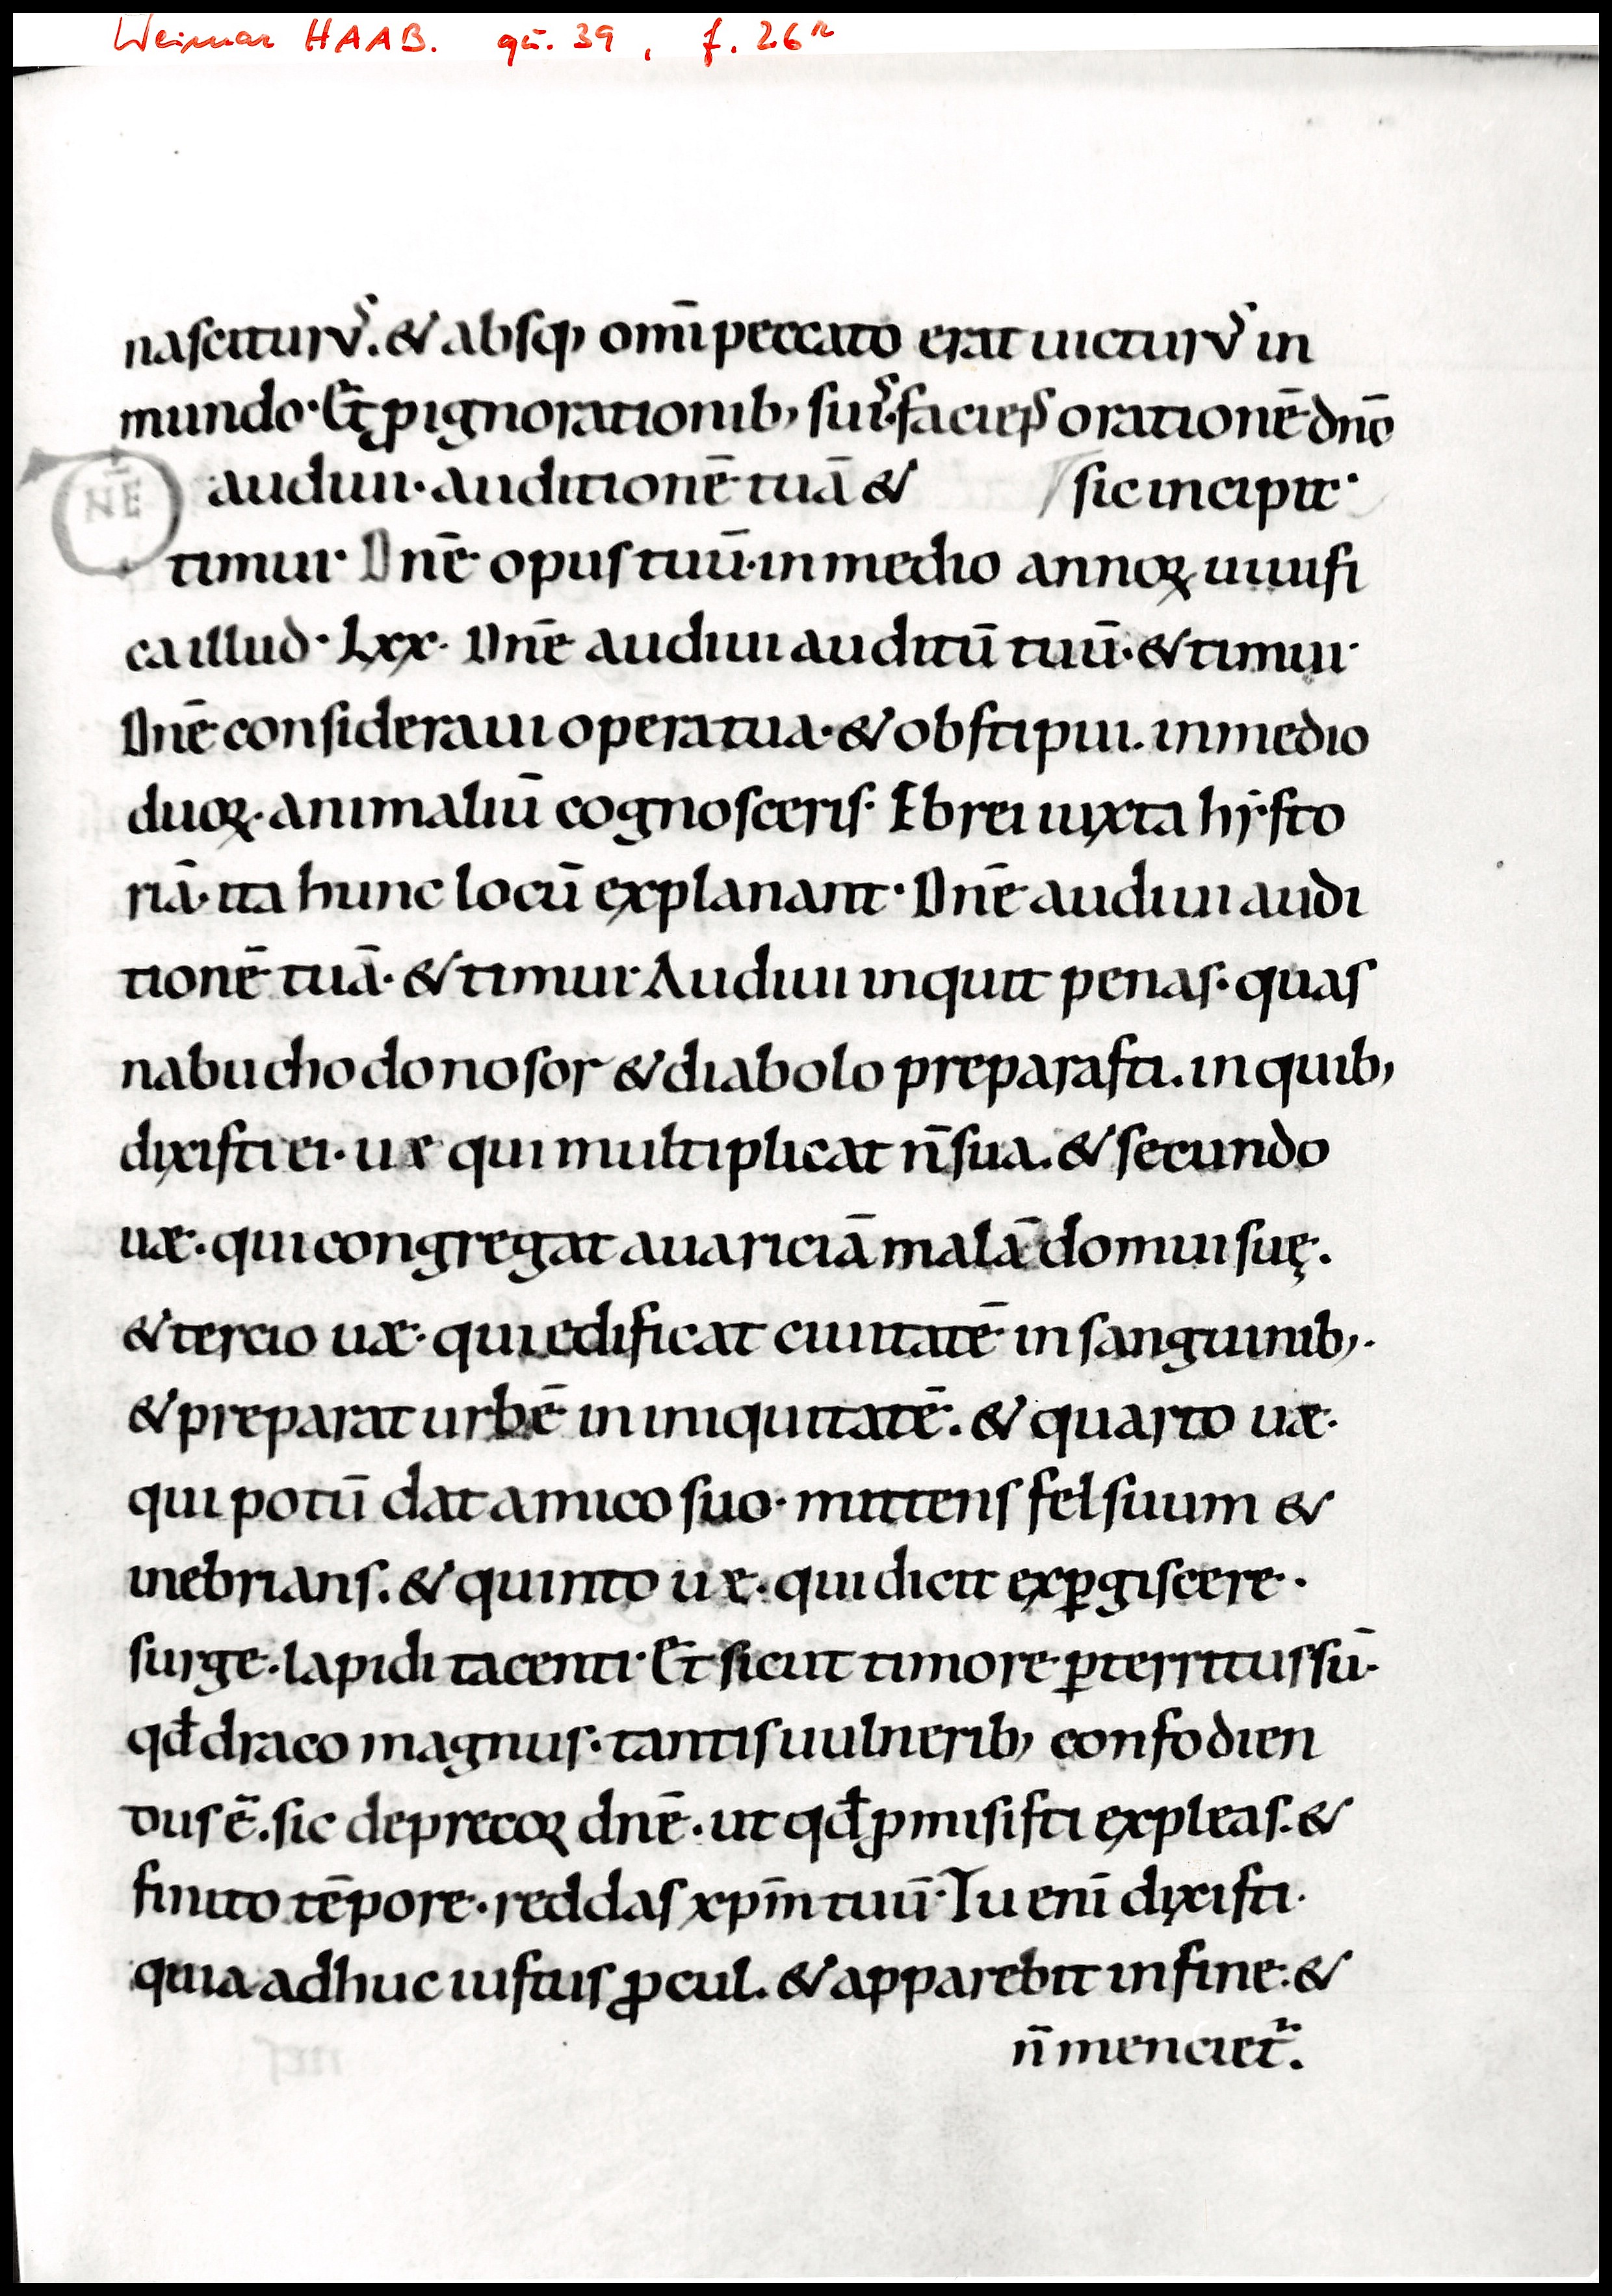 Weimar HAAB. qu. 39, f. 26r
nasciturꝰ. & absqꝫ om̄i peccato erat uicturꝰ in
mundo· Et ꝓ ignorationibꝫ suis. faciens orationē dn̄o
sic incipit·
DN̄E audiui· auditionē tuā &
timui· Dn̄e· opus tuū· in medio annoꝝ uiuifi
ca illud· Lxx· Dn̄e audiui auditū tuū· & timui·
Dn̄e consideraui opera tua· & obstipui. in medio
duoꝝ· animaliū cognosceris· Ebrei iuxta hẏsto
riā· ita hunc locū explanant· Dn̄e audiui audi
tionē tuā· & timui· Audiui inquit penas· quas
nabuchodonosor & diabolo preparasti. in quibꝫ
dixisti ei· uæ qui multiplicat n̄ sua. & secundo
uæ· qui congregat auariciā malā domui suę.
& tercio uæ· qui edificat ciuitatē in sanguinibꝫ·
& preparat urbē in iniquitatē. & quarto uæ·
qui potū dat amico suo· mittens fel suum &
inebrians. & quinto uæ. qui dicit exꝑgiscere·
surge· lapidi tacenti· Et sicut timore ꝑterritus sū·
qđ draco magnus· tantis uulneribꝫ confodien
dus ē. sic deprecoꝝ dn̄e· ut qđ ꝓmisisti expleas. &
finito tēpore· reddas xpm̄ tuū· Tu enī dixisti·
quia adhuc iustus ꝓcul. & apparebit in fine: &
n̄ mencietᷣ.